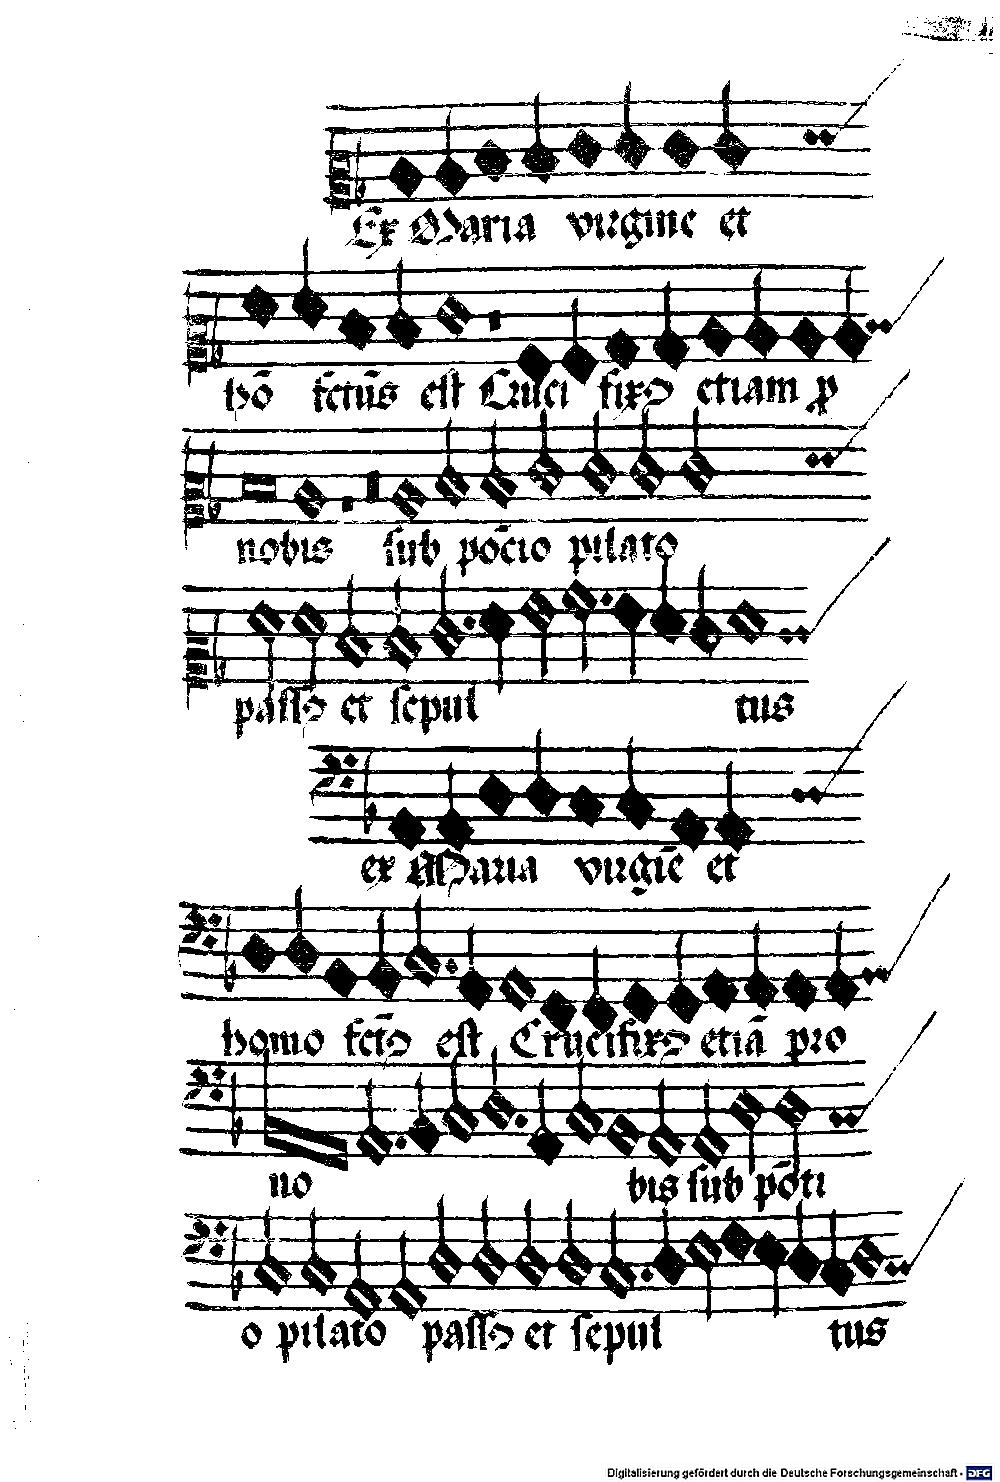 Ex Maria virgine et
hō fctūs est Cruci fixꝯ etiam ꝓ
nobis sub pōcio pilato
passꝯ et sepul tus
ex Maria virgīe et
homo fctꝯ est Crucifixꝯ etiā pro
no bis sub pōti
o pilato passꝯ et sepul tus
Digitalisierung gefördert durch die Deutsche Forschungsgemeinschaft - DFG